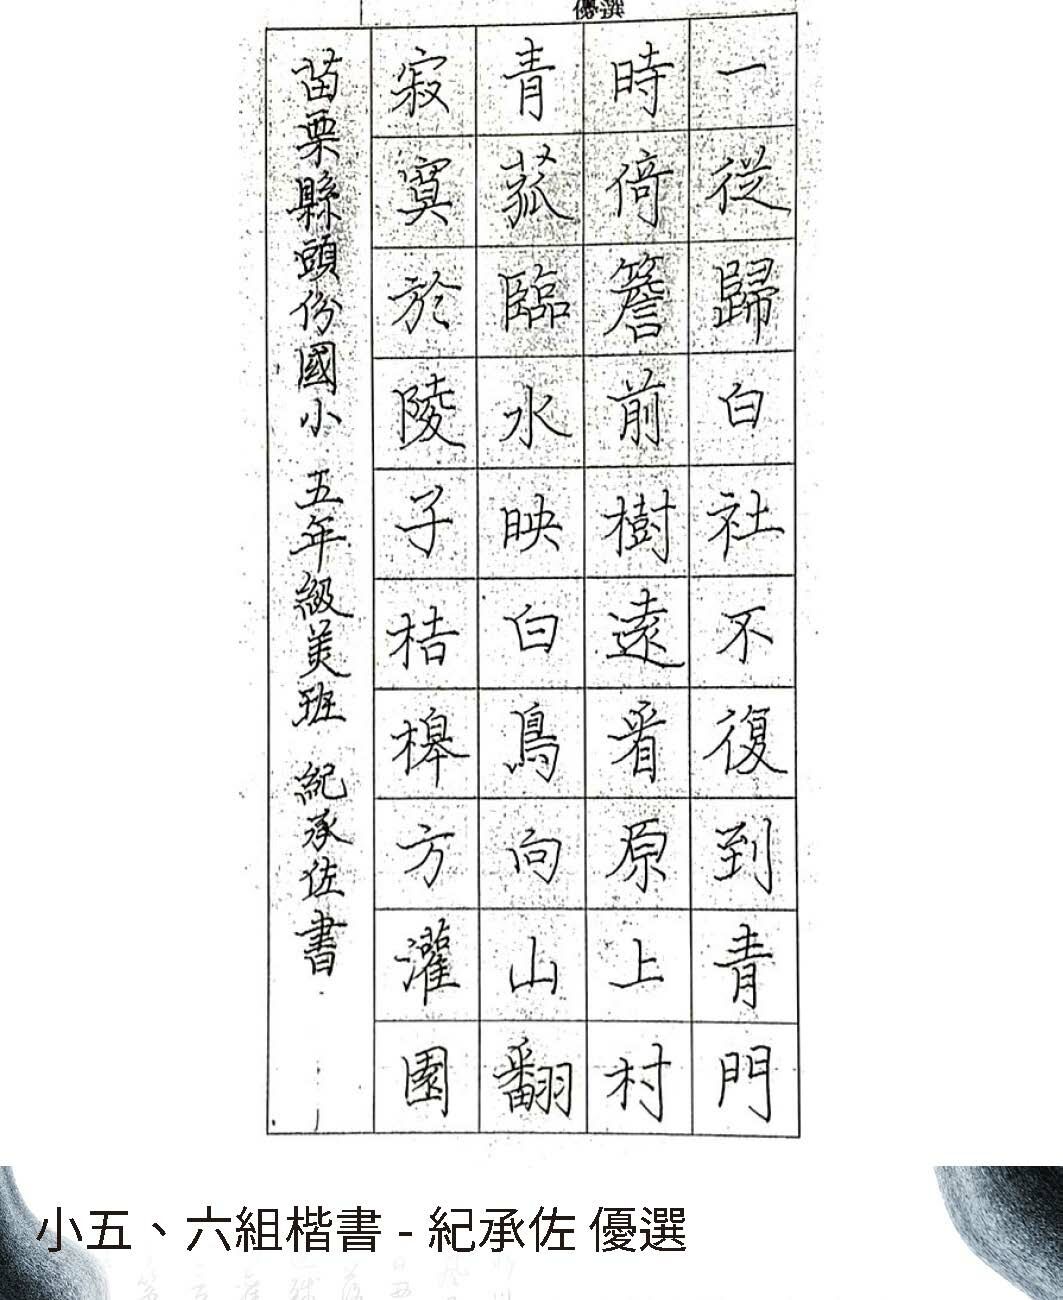 優選
一從歸白社不復到青門
時倚簷前樹遠看原上村
青菰臨水映白鳥向山翻
寂寞於陵子桔槔方灌園
苗栗縣頭份國小 五年級美班 紀承佐書
小五、六組楷書 - 紀承佐 優選